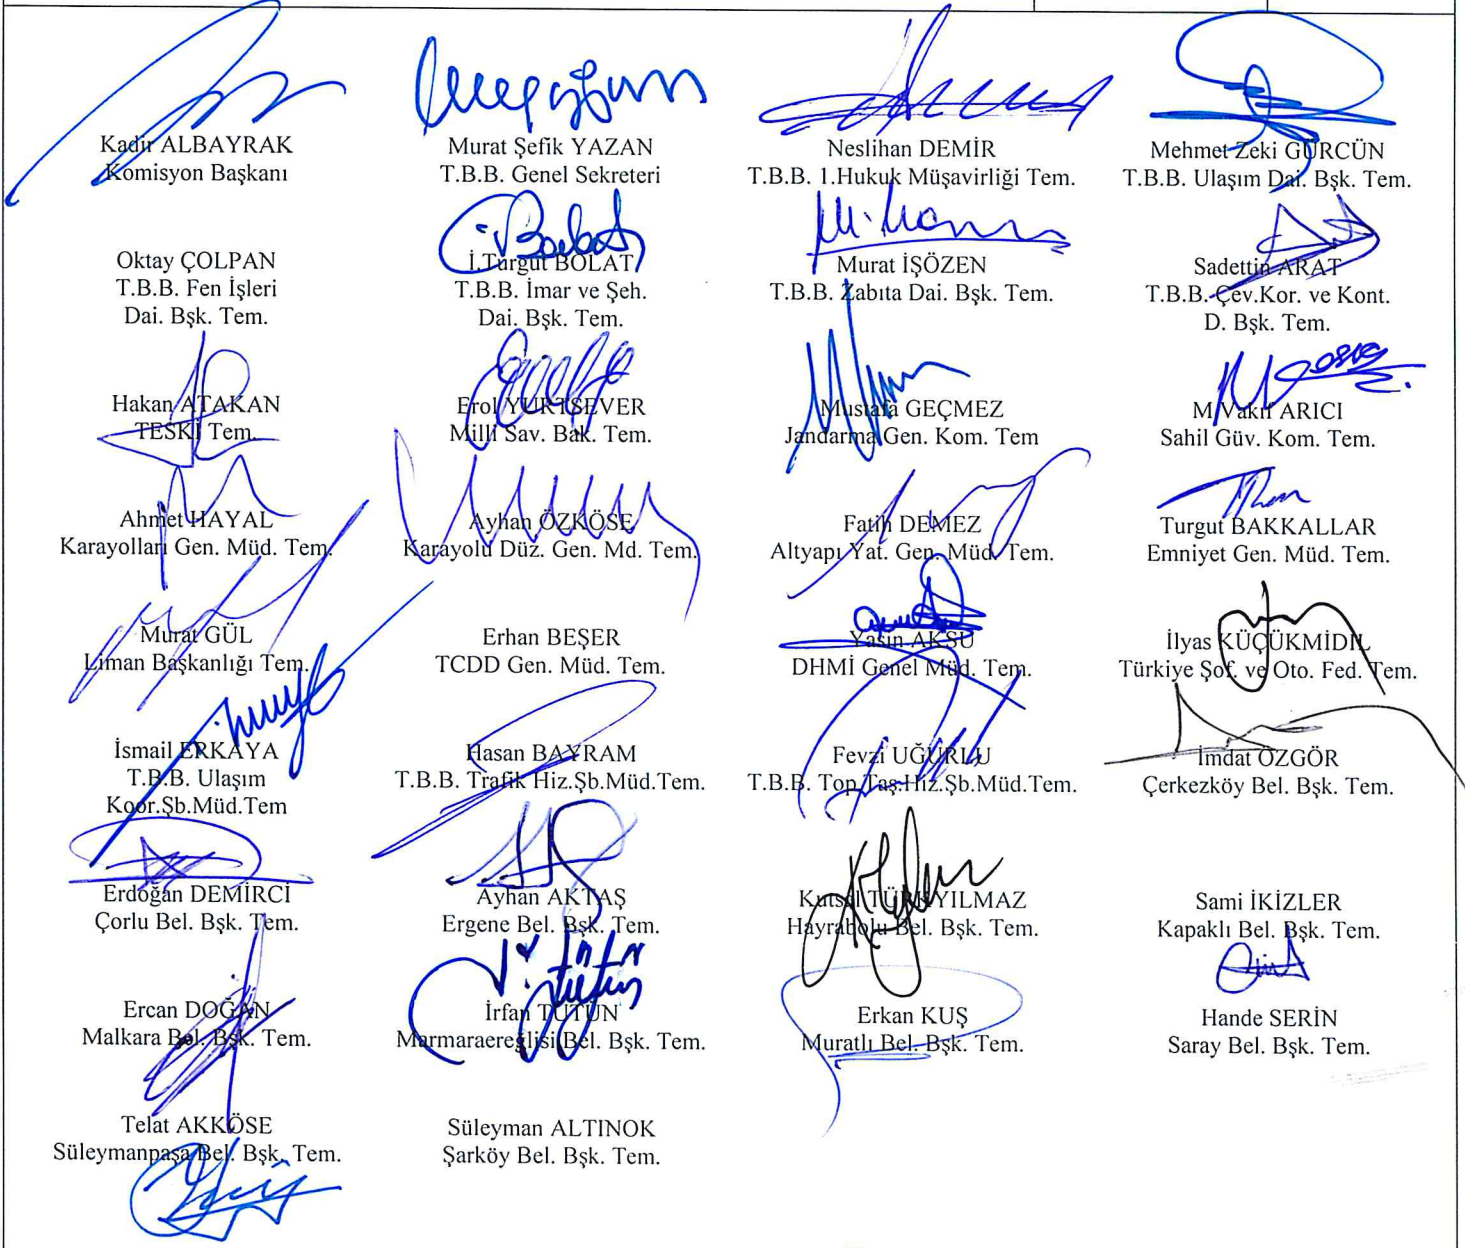 Kadir ALBAYRAK
Komisyon Başkanı
Murat Şefik YAZAN
T.B.B. Genel Sekreteri
Neslihan DEMİR
T.B.B. 1.Hukuk Müşavirliği Tem.
Mehmet Zeki GÜRCÜN
T.B.B. Ulaşım Dai. Bşk. Tem.
Oktay ÇOLPAN
T.B.B. Fen İşleri
Dai. Bşk. Tem.
İ.Turgut BOLAT
T.B.B. İmar ve Şeh.
Dai. Bşk. Tem.
Murat İŞÖZEN
T.B.B. Zabıta Dai. Bşk. Tem.
Sadettin ARAT
T.B.B. Çev.Kor. ve Kont.
D. Bşk. Tem.
Hakan ATAKAN
TESKİ Tem.
Erol YURTSEVER
Milli Sav. Bak. Tem.
Mustafa GEÇMEZ
Jandarma Gen. Kom. Tem
M.Vakıf ARICI
Sahil Güv. Kom. Tem.
Ahmet HAYAL
Karayolları Gen. Müd. Tem.
Ayhan ÖZKÖSE
Karayolu Düz. Gen. Md. Tem.
Fatih DEMEZ
Altyapı Yat. Gen. Müd. Tem.
Turgut BAKKALLAR
Emniyet Gen. Müd. Tem.
Murat GÜL
Liman Başkanlığı Tem.
Erhan BEŞER
TCDD Gen. Müd. Tem.
Yasin AKSU
DHMİ Genel Müd. Tem.
İlyas KÜÇÜKMİDİL
Türkiye Şof. ve Oto. Fed. Tem.
İsmail ERKAYA
T.B.B. Ulaşım
Koor.Şb.Müd.Tem
Hasan BAYRAM
T.B.B. Trafik Hiz.Şb.Müd.Tem.
Fevzi UĞURLU
T.B.B. Top.Taş.Hiz.Şb.Müd.Tem.
İmdat ÖZGÖR
Çerkezköy Bel. Bşk. Tem.
Erdoğan DEMİRCİ
Çorlu Bel. Bşk. Tem.
Ayhan AKTAŞ
Ergene Bel. Bşk. Tem.
Kutsal TÜRKYILMAZ
Hayrabolu Bel. Bşk. Tem.
Sami İKİZLER
Kapaklı Bel. Bşk. Tem.
Ercan DOĞAN
Malkara Bel. Bşk. Tem.
İrfan TÜTÜN
Marmaraereğlisi Bel. Bşk. Tem.
Erkan KUŞ
Muratlı Bel. Bşk. Tem.
Hande SERİN
Saray Bel. Bşk. Tem.
Telat AKKÖSE
Süleymanpaşa Bel. Bşk. Tem.
Süleyman ALTINOK
Şarköy Bel. Bşk. Tem.